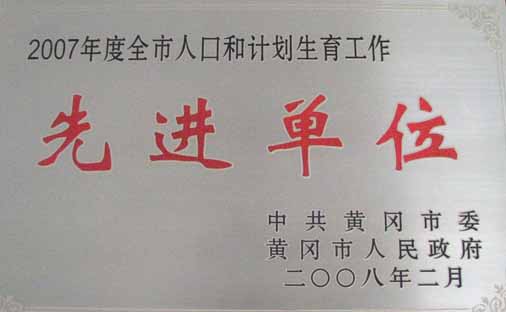 2007年度全市人口和计划生育工作
先进单位
中共黄冈市委
黄冈市人民政府
二〇〇八年二月